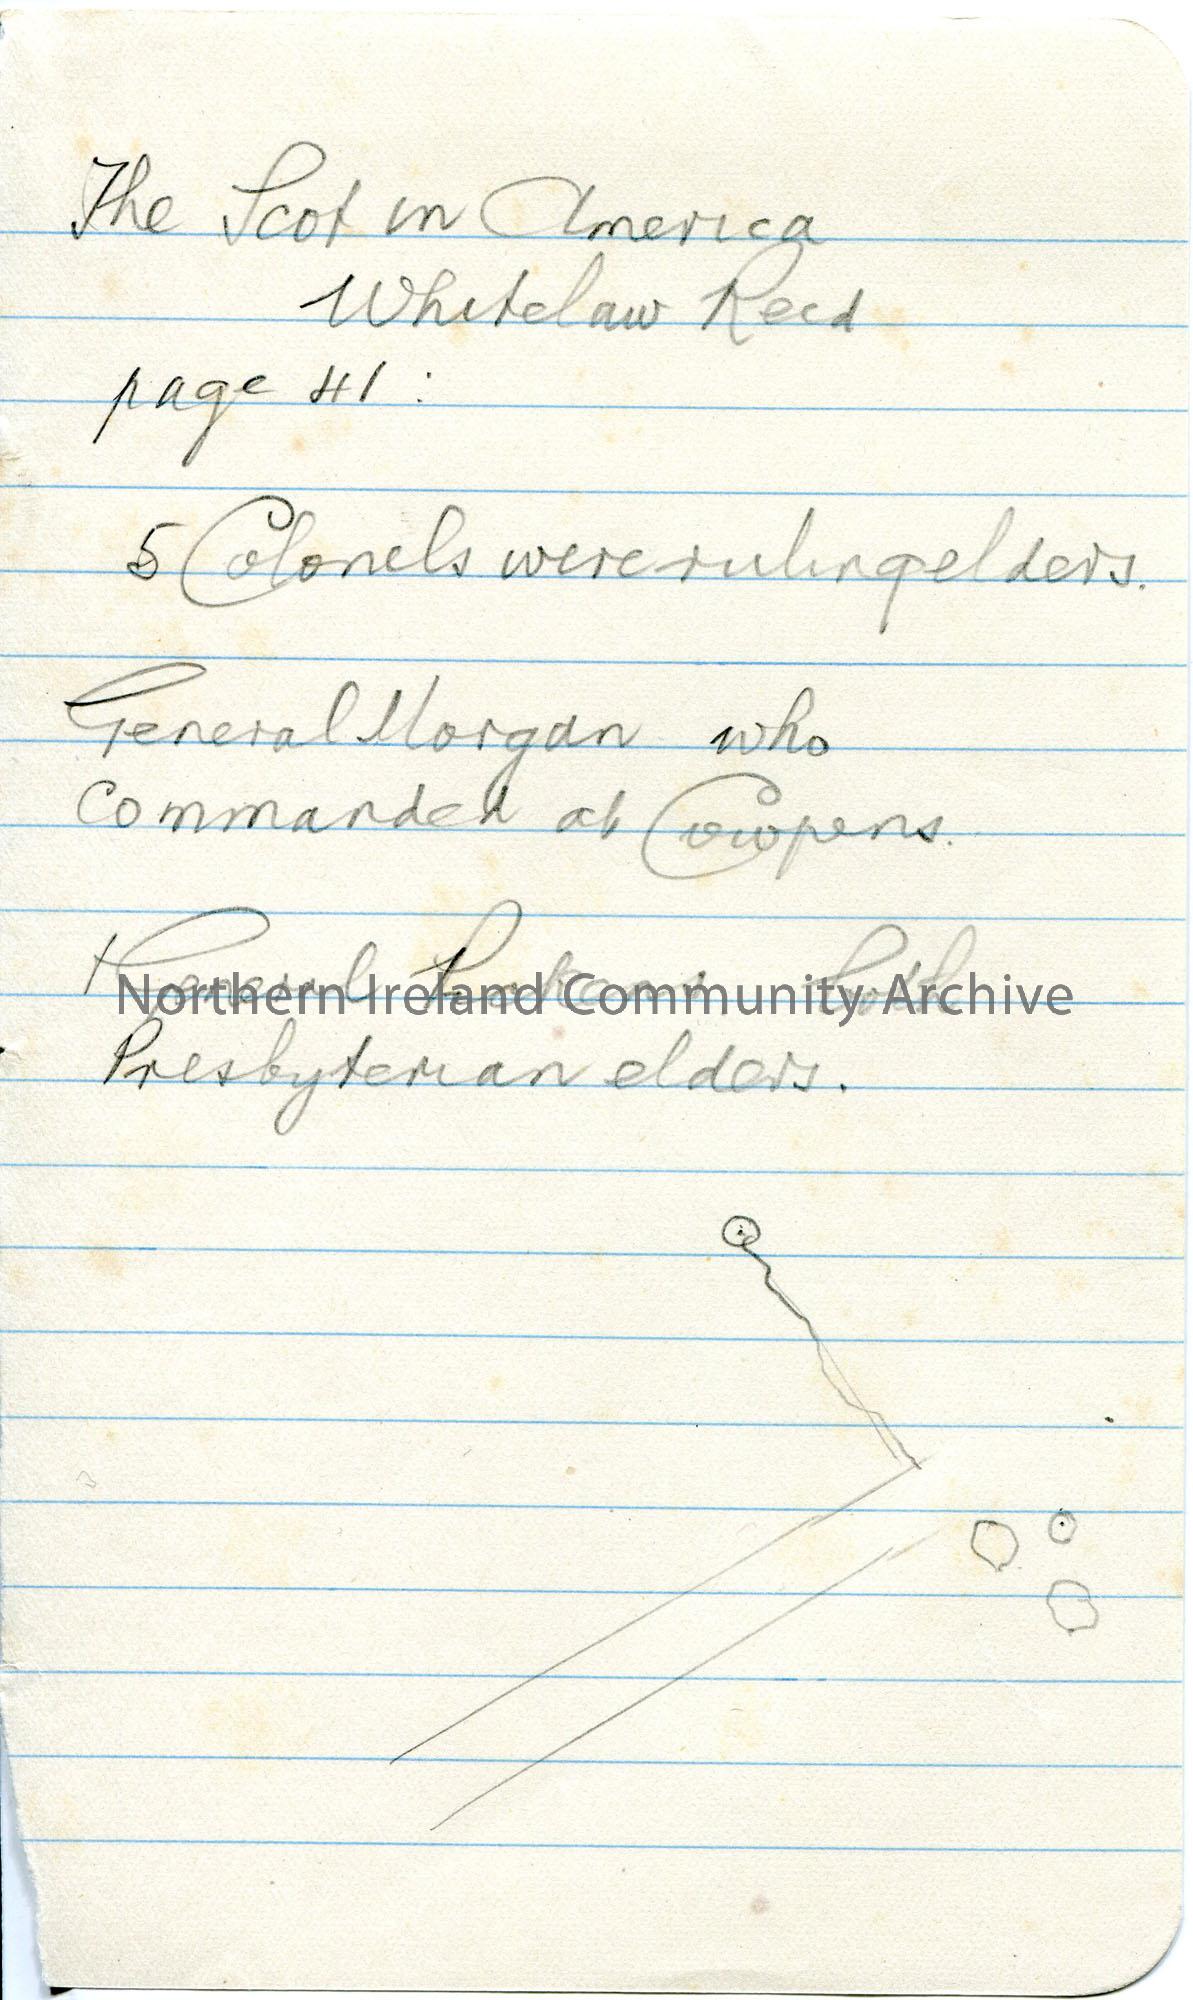 The Scot in America
Whitelaw Reid
page 41 :
5 Colonels were ruling elders.
General Morgan who
commanded at Cowpens.
+ General Pickens both
Northern Ireland Community Archive
Presbyterian elders.